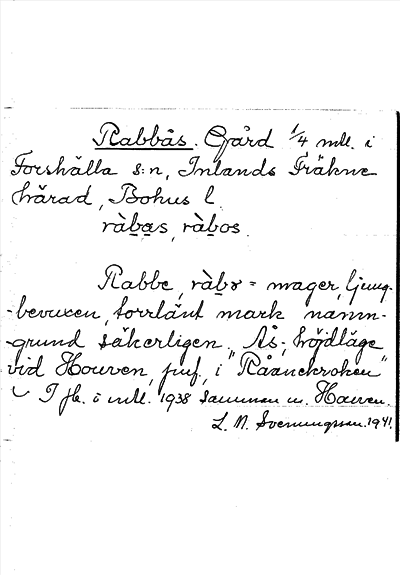 Rabbås. Gård 1/4 mtl. i
Forshälla s:n, Inlands Fräkne
härad, Bohus l.
ràbas, ràbos.
Rabbe, ràbɤ = mager, ljung-
-bevuxen, torrlänt mark namn-
-grund säkerligen. Ås-, höjdläge
vid Houven, jmf, i "Råånekroken"
I jb. i mtl. 1938 samman m. Hauven.
L. N. Svenungsson. 1941.